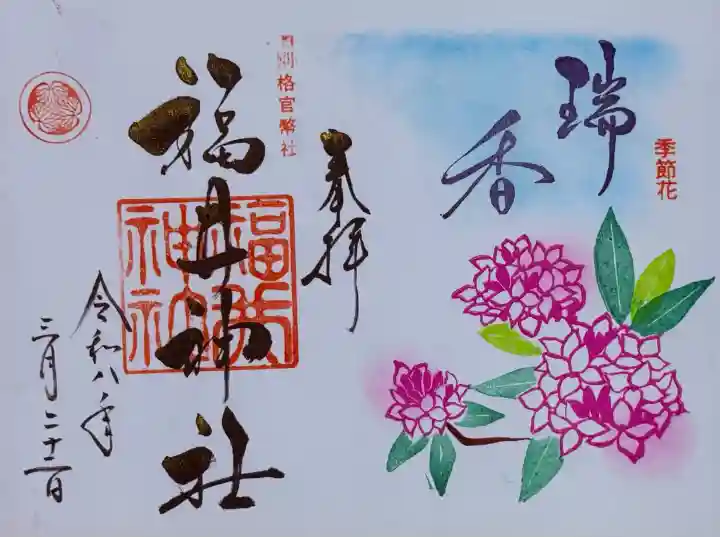 季節花
瑞
香
奉拝
別格官幣社
福井神社
福井神社
令和八年
三月二十一日